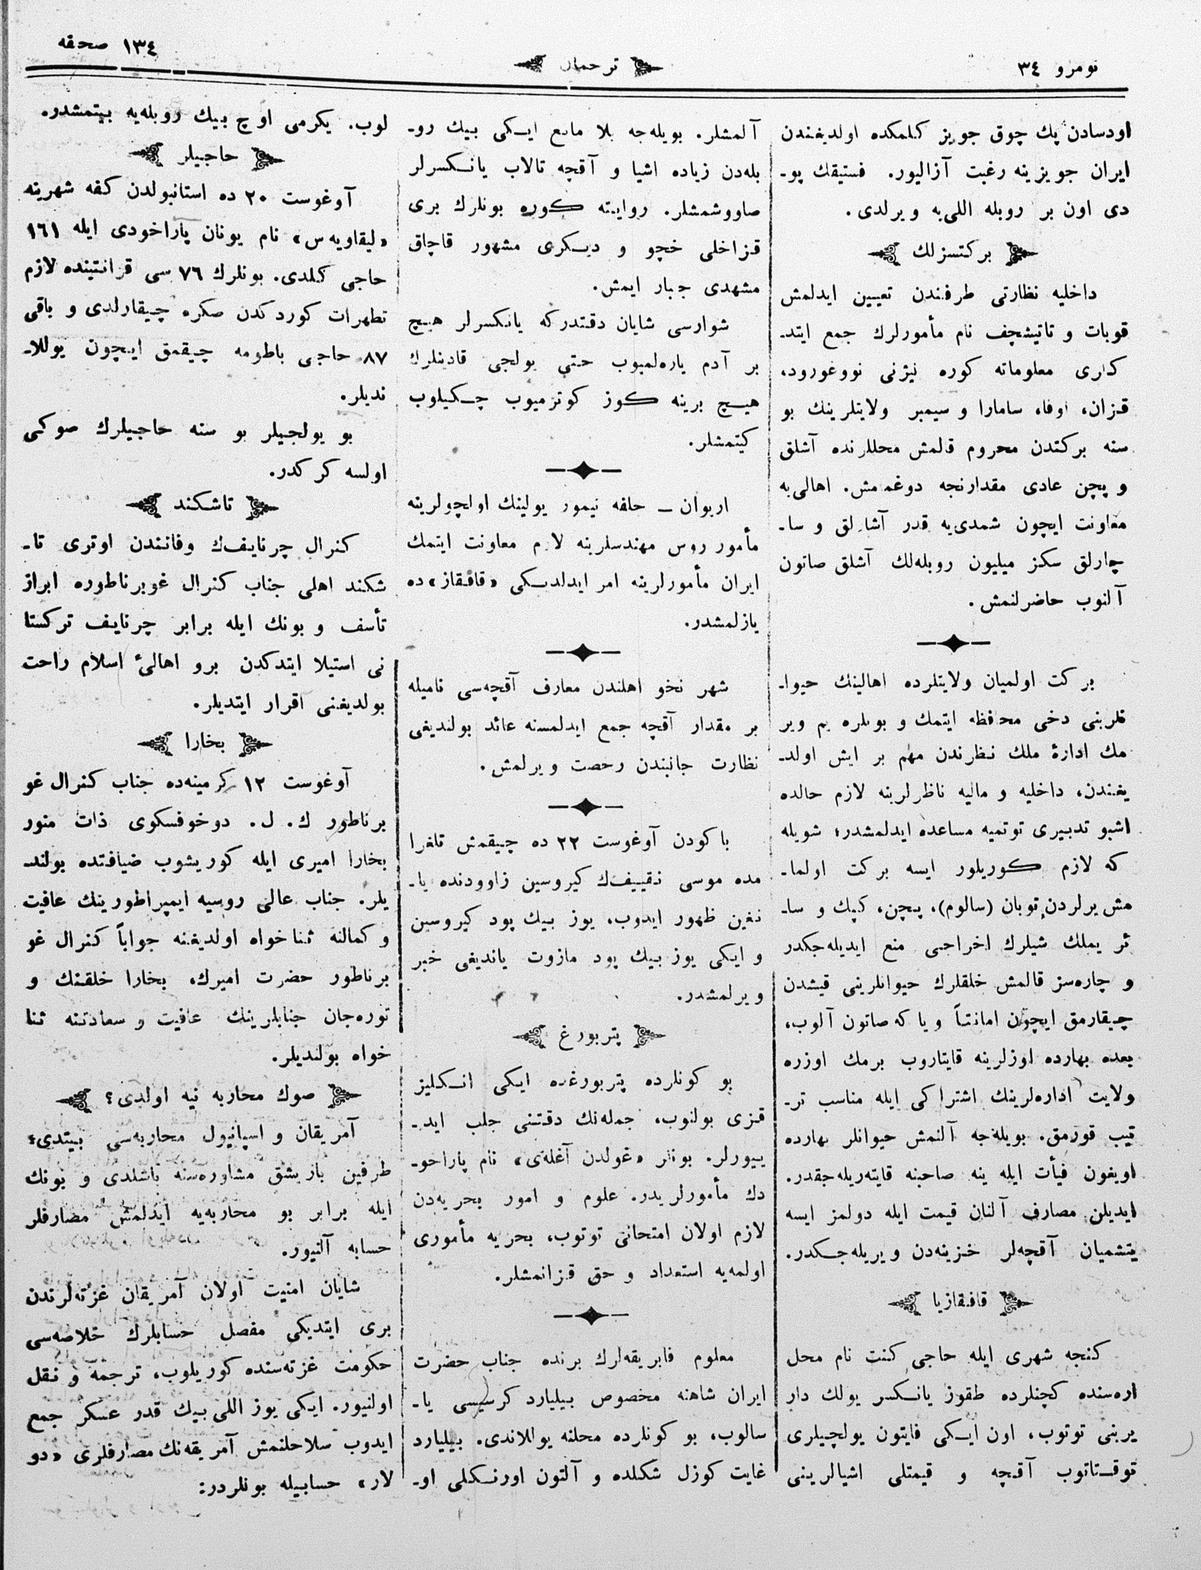 نومرو ٣٤
ترجمان
١٣٤ صحفه
اودسادن پك چوق جويز كلمكده اولديغندن
ايران جويزينه رغبت آزاليور. فستيقك پو-
دى اون بر روبله اللى‌يه ويرلدى.
بركتسزلك
داخليه نظارتى طرفندن تعيين ايدلمش
قوبات و تاتيشچف نام مأمورلرك جمع ايتد-
كلرى معلوماته كوره نيژنى نووغورود،
قزان، اوفا، سامارا و سيمبر ولايتلرينك بو
سنه بركتدن محروم قالمش محللرنده آشلق
و پچن عادى مقدارنجه دوغمامش. اهالى‌يه
معاونت ايچون شمدى‌يه قدر آشلق و سا-
چارلق سكز ميليون روبله‌لك آشلق صاتون
آلنوب حاضرلنمش.
بركت اولميان ولايتلرده اهالينك حيوا-
نلرينى دخى محافظه ايتمك و بونلره يم وير
مك ادارۀ ملك نظرندن مهم بر ايش اولد-
يغندن، داخليه و ماليه ناظرلرينه لازم حالده
اشبو تدبيرى توتميه مساعده ايدلمشدر؛ شويله
كه لازم كوريلور ايسه بركت اولما-
مش يرلردن توبان (سالوم)، پچن، كپك و سا-
ئر يملك شيلرك اخراجى منع ايديله‌جكدر
و چاره‌سز قالمش خلقلرك حيوانلرينى قيشدن
چيقارمق ايچون امانتاً و ياكه صاتون آلوب،
بعده بهارده اوزلرينه قايتاروب برمك اوزره
ولايت اداره‌لرينك اشتراكى ايله مناسب تر-
تيب قورمق. بويله‌جه آلنمش حيوانلر بهارده
اويغون فيأت ايله ينه صاحبنه قايته‌ريله‌جقدر.
ايديلن مصارف آلنان قيمت ايله دولمز ايسه
يتشميان آقچه‌لر خزينه‌دن ويريله‌جكدر.
قافقازيا
كنجه شهرى ايله حاجى كنت نام محل
اره‌سنده كچنلرده طقوز يانكسر يولك دار
يرينى توتوب، اون ايكى فايتون يولچيلرى
توقتاتوب آقچه و قيمتلى اشيالرينى
آلمشلر. بويله‌جه بلا مانع ايكى بيك رو-
بله‌دن زياده اشيا و آقچه تالاب يانكسرلر
صاووشمشلر. روايته كوره بونلرك برى
قزاخلى خچو و ديكرى مشهور قاچاق
مشهدى جبار ايمش.
شوارسى شايان دقتدركه يانكسرلر هيچ
بر آدم ياره‌لميوب حتى يولجى قادينلرك
هيچ برينه كوز كوتزميوب چكيلوب
كيتمشلر.
اريوان ــ جلفه تيمور يولينك اولچولرينه
مأمور روس مهندسلرينه لازم معاونت ايتمك
ايران مأمورلرينه امر ايدلديكى «قافقاز» ده
يازلمشدر.
شهر نخو اهلندن معارف آقچه‌سى ناميله
بر مقدار آقچه جمع ايدلمسنه عائد بولنديغى
نظارت جانبندن رخصت ويرلمش.
باكودن آوغوست ٢٢ ده چيقمش تلغرا
مده موسى نقييفك كيروسين زاوودنده يا-
نغين ظهور ايدوب، يوز بيك پود كيروسين
و ايكى يوز بيك پود مازوت يانديغى خبر
ويرلمشدر.
پتربورغ
بو كونلرده پتربورغده ايكى انكليز
قزى بولنوب، جمله‌نك دقتنى جلب ايد-
ييورلر. بونلر «غولدن آغله‌ى» نام پاراخو-
دك مأمورلريدر. علوم و امور بحريه‌دن
لازم اولان امتحانى توتوب، بحريه مأمورى
اولمه‌يه استعداد و حق قزانمشلر.
معلوم فابريقه‌لرك برنده جناب حضرت
ايران شاهنه مخصوص بيليارد كرسيسى يا-
سالوب، بو كونلرده محلنه يوللاندى. بيليارد
غايت كوزل شكلده و آلتون اورنكلى او-
لوب. يكرمى اوچ بيك روبله‌يه بيتمشدر.
حاجيلر
آوغوست ٢٠ ده استانبولدن كفه شهرينه
«ليقاويه‌س» نام يونان پاراخودى ايله ١٦١
حاجى كلدى. بونلرك ٧٦ سى قرانتينده لازم
تطهرات كوردكدن صكره چيقارلدى و باقى
٨٧ حاجى باطومه چيقمق ايچون يوللا-
نديلر.
بو يولجيلر بو سنه حاجيلرك صوكى
اولسه كركدر.
تاشكند
كنرال چرنايفك وفاتندن اوترى تا-
شكند اهلى جناب كنرال غوبرناطوره ابراز
تأسف و بونك ايله برابر چرنايف تركستا
نى استيلا ايتدكدن برو اهالئ اسلام راحت
بولديغنى اقرار ايتديلر.
بخارا
آوغوست ١٢ كرمينه‌ده جناب كنرال غو
برناطور ك. ل. دوخوفسكوى ذات منور
بخارا اميرى ايله كوريشوب ضيافتده بولند-
يلر. جناب عالى روسيه ايمپراطورينك عافيت
و كمالنه ثناخواه اولديغنه جواباً كنرال غو
برناطور حضرت اميرك، بخارا خلقنك و
توره‌جان جنابلرينك عافيت و سعادتنه ثنا
خواه بولنديلر.
صوك محاربه نيه اولدى؟
آمريقان و اسپانيول محاربه‌سى بيتدى؛
طرفين باريشق مشاوره‌سنه باشلدى و بونك
ايله برابر بو محاربه‌يه ايدلمش مصارفلر
حسابه آلنيور.
شايان امنيت اولان آمريقان غزته‌لرندن
برى ايتديكى مفصل حسابلرك خلاصه‌سى
حكومت غزته‌سنده كوريلوب، ترجمه و نقل
اولنيور. ايكى يوز اللى بيك قدر عسكر جمع
ايدوب سلاحلنمش آمريقه‌نك مصارفلرى «دو
لار» حسابيله بونلردر: